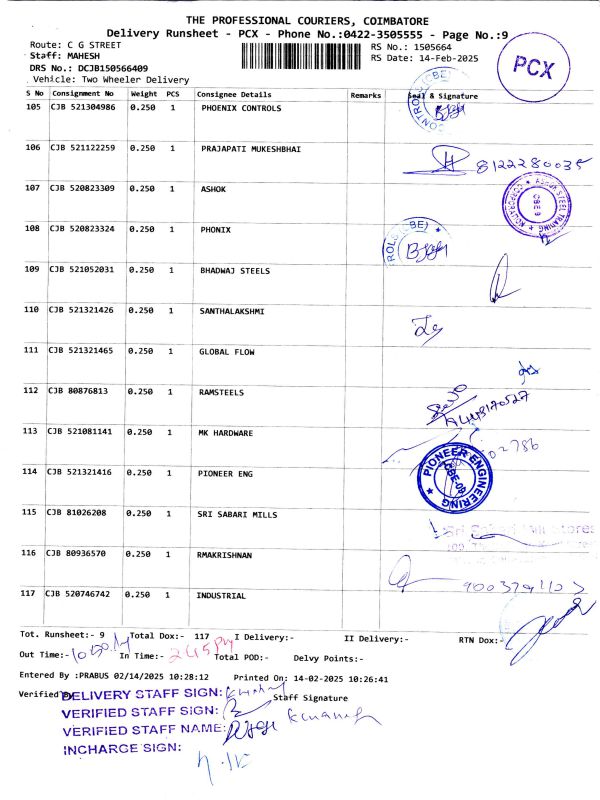 THE PROFESSIONAL COURIERS, COIMBATORE
Delivery Runsheet - PCX - Phone No.:0422-3505555 - Page No.:9
Route: C G STREET RS No.: 1505664
Staff: MAHESH RS Date: 14-Feb-2025
DRS No.: DCJB150566409
Vehicle: Two Wheeler Delivery
PCX
S No Consignment No Weight PCS Consignee Details Remarks Seal & Signature
105 CJB 521304986 0.250 1 PHOENIX CONTROLS
106 CJB 521122259 0.250 1 PRAJAPATI MUKESHBHAI 8122280035
107 CJB 520823309 0.250 1 ASHOK
108 CJB 520823324 0.250 1 PHONIX
109 CJB 521052031 0.250 1 BHADWAJ STEELS
110 CJB 521321426 0.250 1 SANTHALAKSHMI
111 CJB 521321465 0.250 1 GLOBAL FLOW
112 CJB 80876813 0.250 1 RAMSTEELS
113 CJB 521081141 0.250 1 MK HARDWARE
114 CJB 521321416 0.250 1 PIONEER ENG PIONEER ENGINEERING
115 CJB 81026208 0.250 1 SRI SABARI MILLS
116 CJB 80936570 0.250 1 RMAKRISHNAN
117 CJB 520746742 0.250 1 INDUSTRIAL
Tot. Runsheet:- 9 Total Dox:- 117 I Delivery:- II Delivery:- RTN Dox:-
Out Time:- In Time:- 2.45 PM Total POD:- Delvy Points:-
Entered By :PRABUS 02/14/2025 10:28:12 Printed On: 14-02-2025 10:26:41
Verified By Staff Signature
DELIVERY STAFF SIGN:
VERIFIED STAFF SIGN:
VERIFIED STAFF NAME:
INCHARGE SIGN: